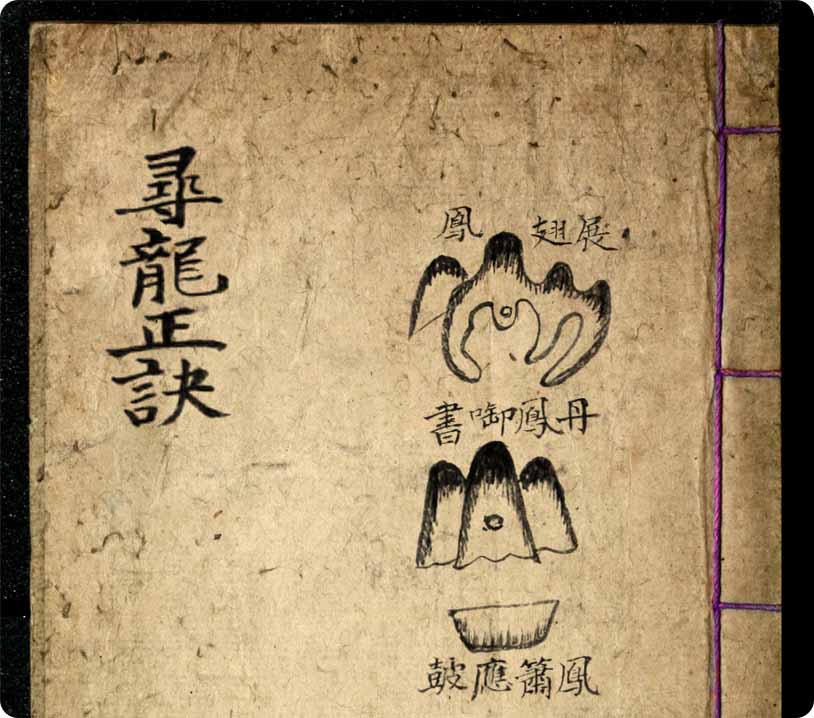 尋龍正訣
展翅鳳
丹鳳啣書
鳳簫應皷